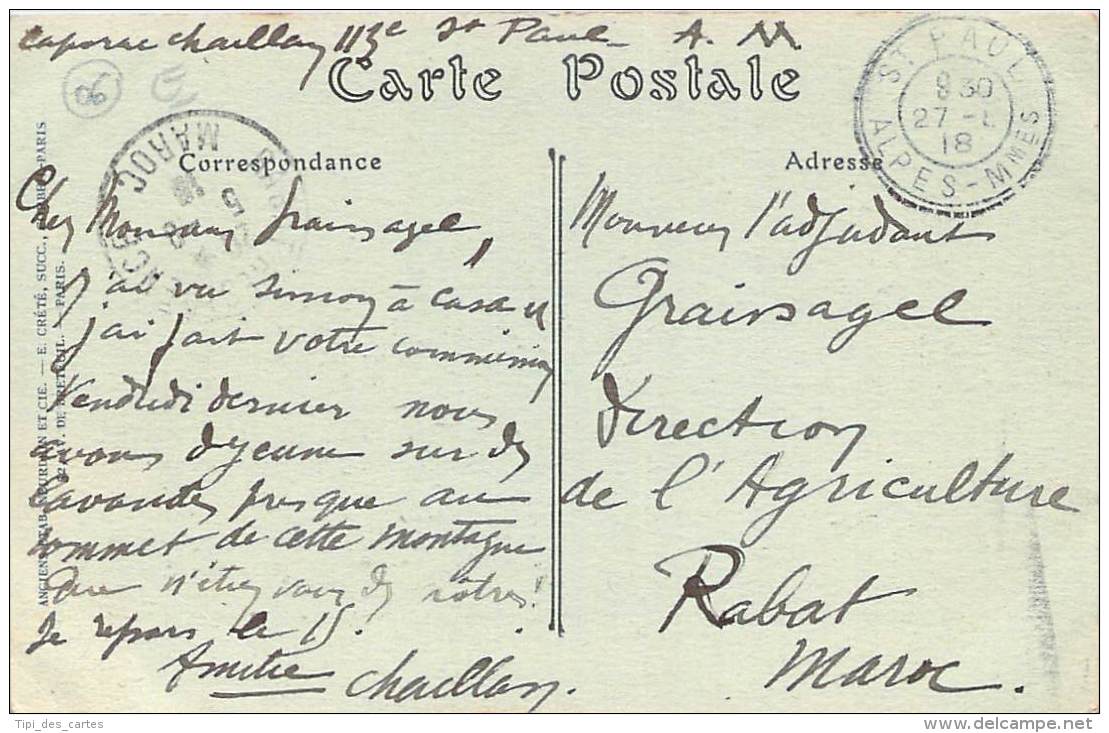 Caporal Chaillan 113e St Paul A. M.
Carte Postale
06
ST PAUL
9 30
27 - 1
18
ALPES-MMES
MAROC
Correspondance
Adresse
Cher Monsieur Grainsagel,
j'ai vu Simon à Casa et
j'ai fait votre commission
Vendredi dernier nous
avons déjeuné sur des
lavandes presque au
sommet de cette montagne
Que n'étiez vous des nôtres!
Je repars le 15.
Amitié Chaillan.
Monsieur l'adjudant
Grainsagel
Direction
de l'Agriculture
Rabat
Maroc.
ANCIENS ETAB. NEURDEIN ET CIE. — E. CRÉTÉ, SUCC., CORBEIL-PARIS
52, AV. DE BRETEUIL. - PARIS.
Tipi_des_cartes
delcampe.net